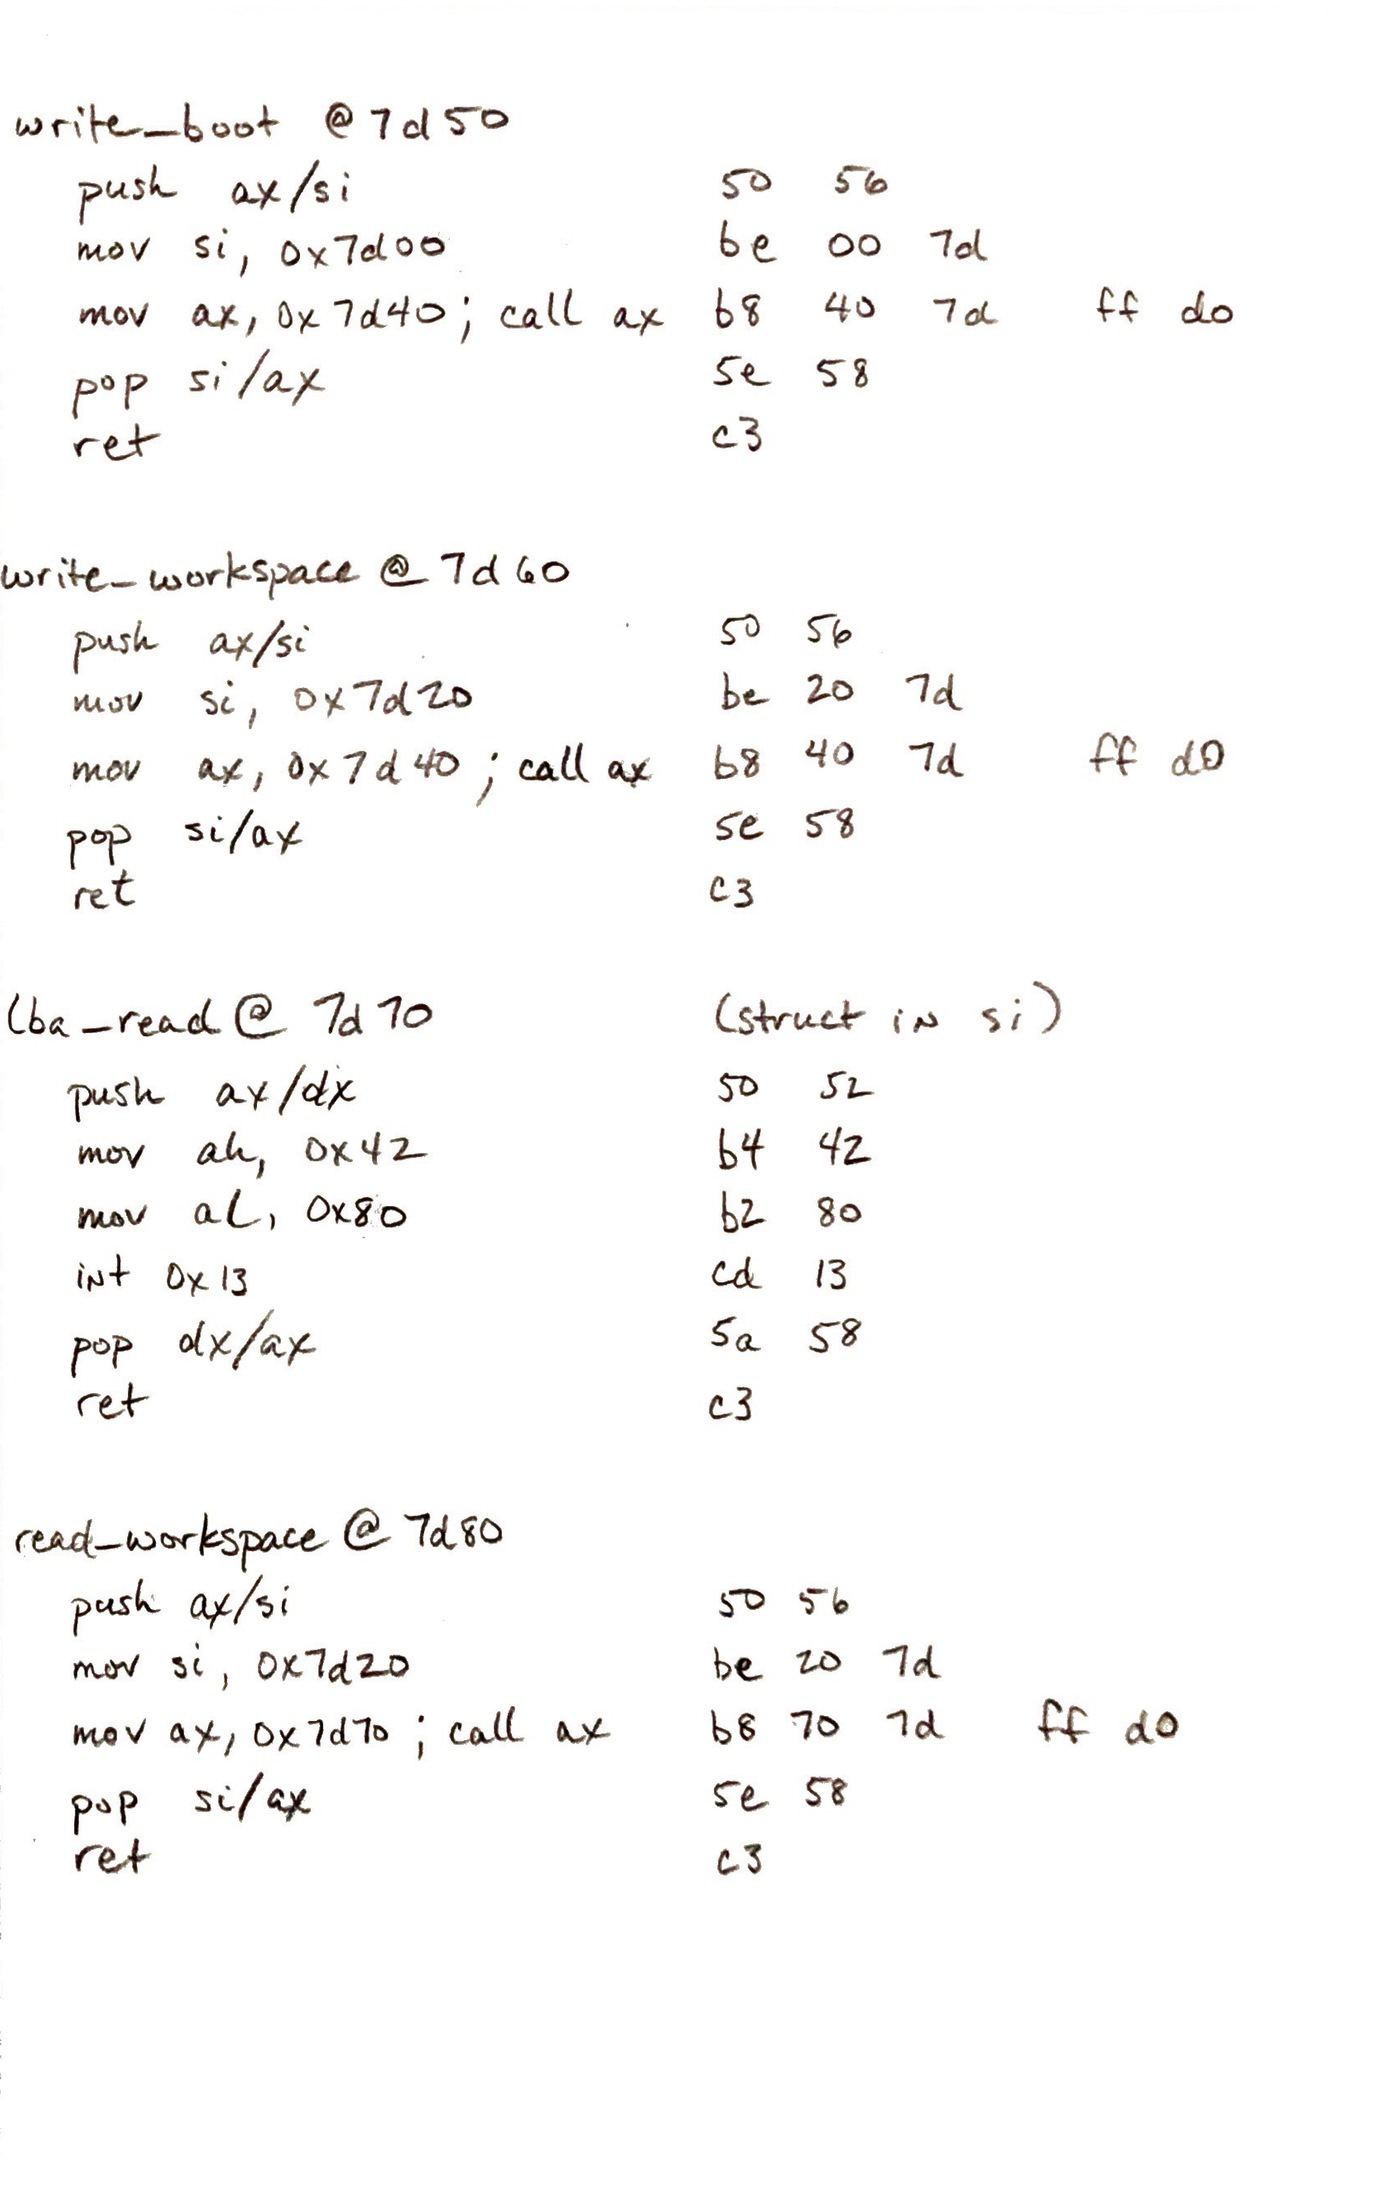 write_boot @ 7d50
push ax/si 50 56
mov si, 0x7d00 be 00 7d
mov ax, 0x7d40; call ax b8 40 7d ff d0
pop si/ax 5e 58
ret c3
write_workspace @ 7d60
push ax/si 50 56
mov si, 0x7d20 be 20 7d
mov ax, 0x7d40; call ax b8 40 7d ff d0
pop si/ax 5e 58
ret c3
lba_read @ 7d70 (struct in si)
push ax/dx 50 52
mov ah, 0x42 b4 42
mov al, 0x80 b2 80
int 0x13 cd 13
pop dx/ax 5a 58
ret c3
read_workspace @ 7d80
push ax/si 50 56
mov si, 0x7d20 be 20 7d
mov ax, 0x7d70; call ax b8 70 7d ff d0
pop si/ax 5e 58
ret c3